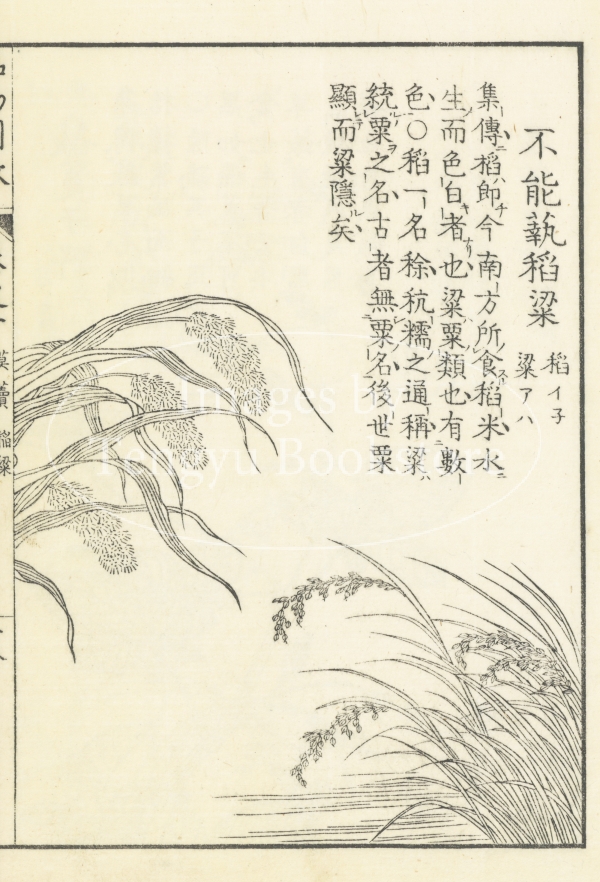 不能蓺稻粱
稻イ子
粱アハ
集傳稻即今南方所食稻米水
生而色白者也粱粟類也有數
色○稻一名稌秔糯之通稱粱
統粟之名古者無粟名後世粟
顯而粱隱矣
稻粱
Images by
Tengyu Bookstore